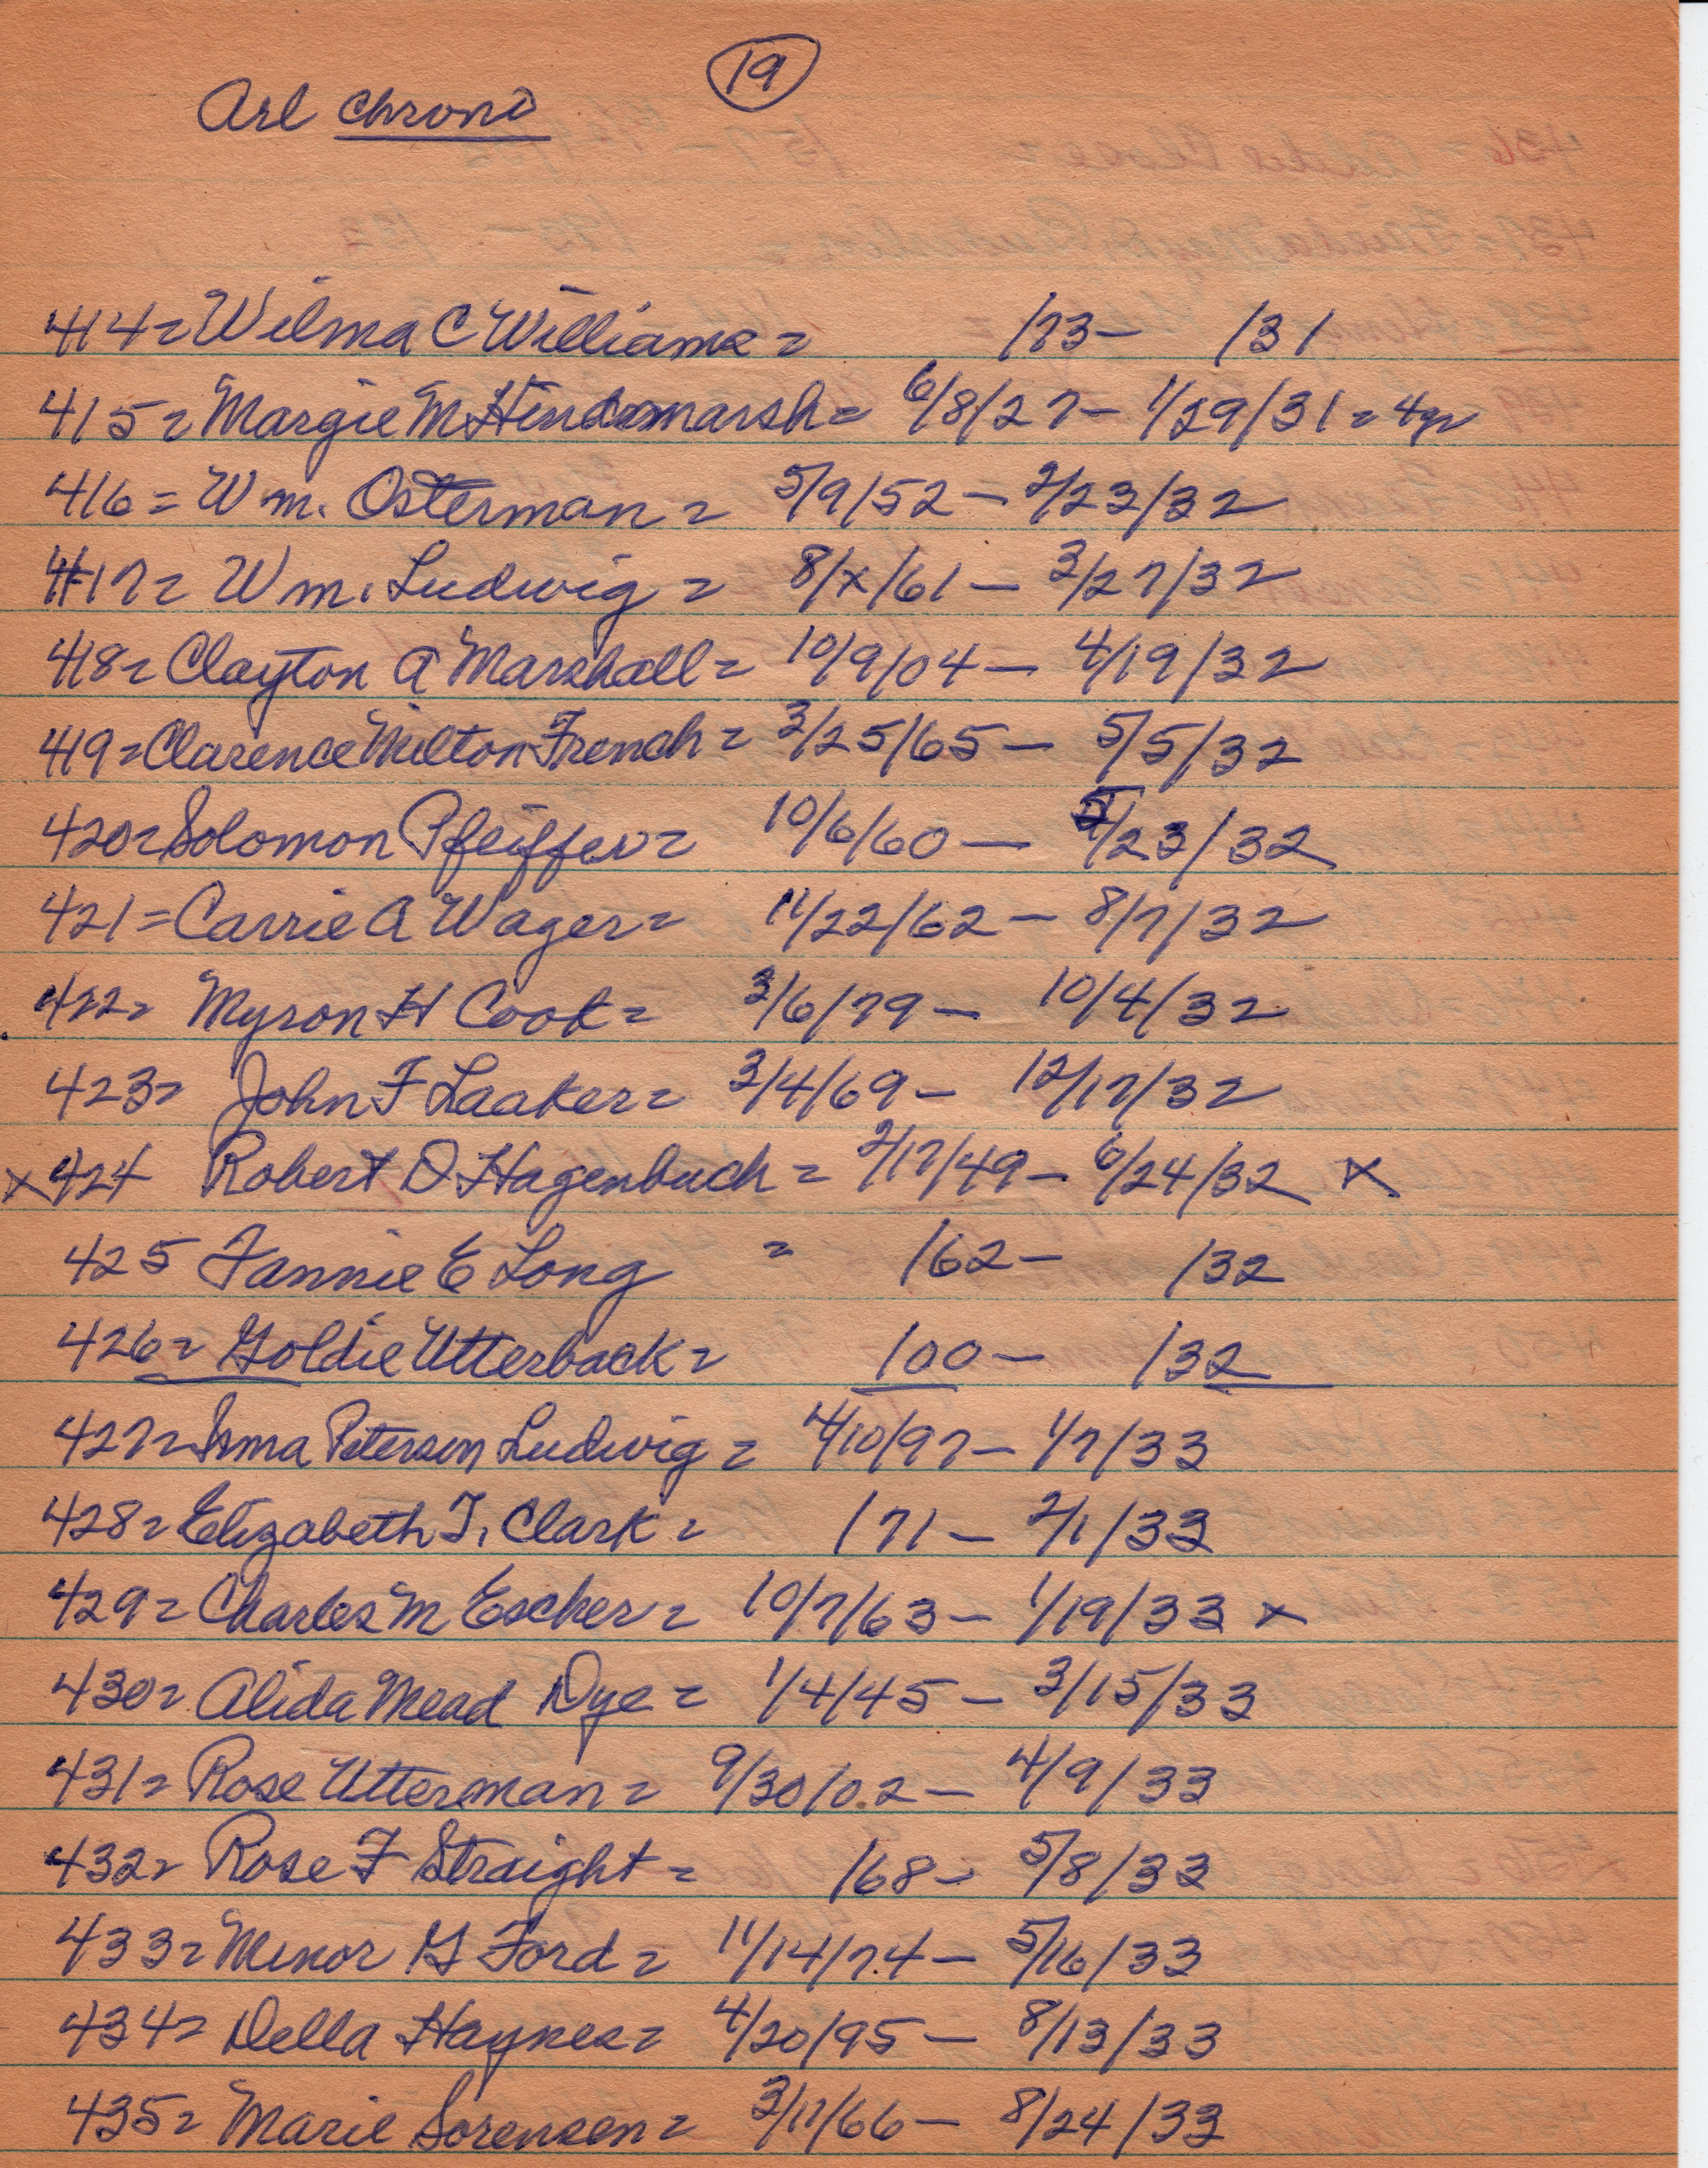 19
Arl Chrono
414= Wilma C Williams = /73- /31
415= Margie M Hindsmarsh= 6/8/27- 1/29/31= 4yr
416= Wm. Osterman = 5/9/52 - 2/23/32
417= Wm. Ludwig = 8/x/61 - 3/27/32
418= Clayton A Marshall= 10/9/04 - 4/19/32
419=Clarence Milton French = 3/25/65 - 5/5/32
420=Solomon Pfeiffer= 10/6/60 - 5/23/32
421=Carrie A Wager= 11/22/62 - 8/7/32
422= Myron H Cook= 3/6/79 - 10/4/32
423= John F Laaker= 3/4/69 - 12/17/32
x 424 Robert D Hagenbuch = 2/17/49 - 6/24/32 x
425 Fannie E Long = /62 - /32
426= Goldie Utterback= /00 - /32
427= Irma Peterson Ludwig = 4/10/97 - 1/7/33
428= Elizabeth T. Clark = /71 - 2/1/33
429= Charles M Escher = 10/7/63 - 1/19/33 x
430= Alida Mead Dye = 1/4/45 - 3/15/33
431= Rose Utterman = 9/30/02 - 4/9/33
432= Rose F Straight = /68 - 5/8/33
433= Minor G Ford = 11/14/74 - 5/16/33
434= Della Haynes= 4/20/95 - 8/13/33
435= Marie Sorensen= 3/11/66 - 8/24/33